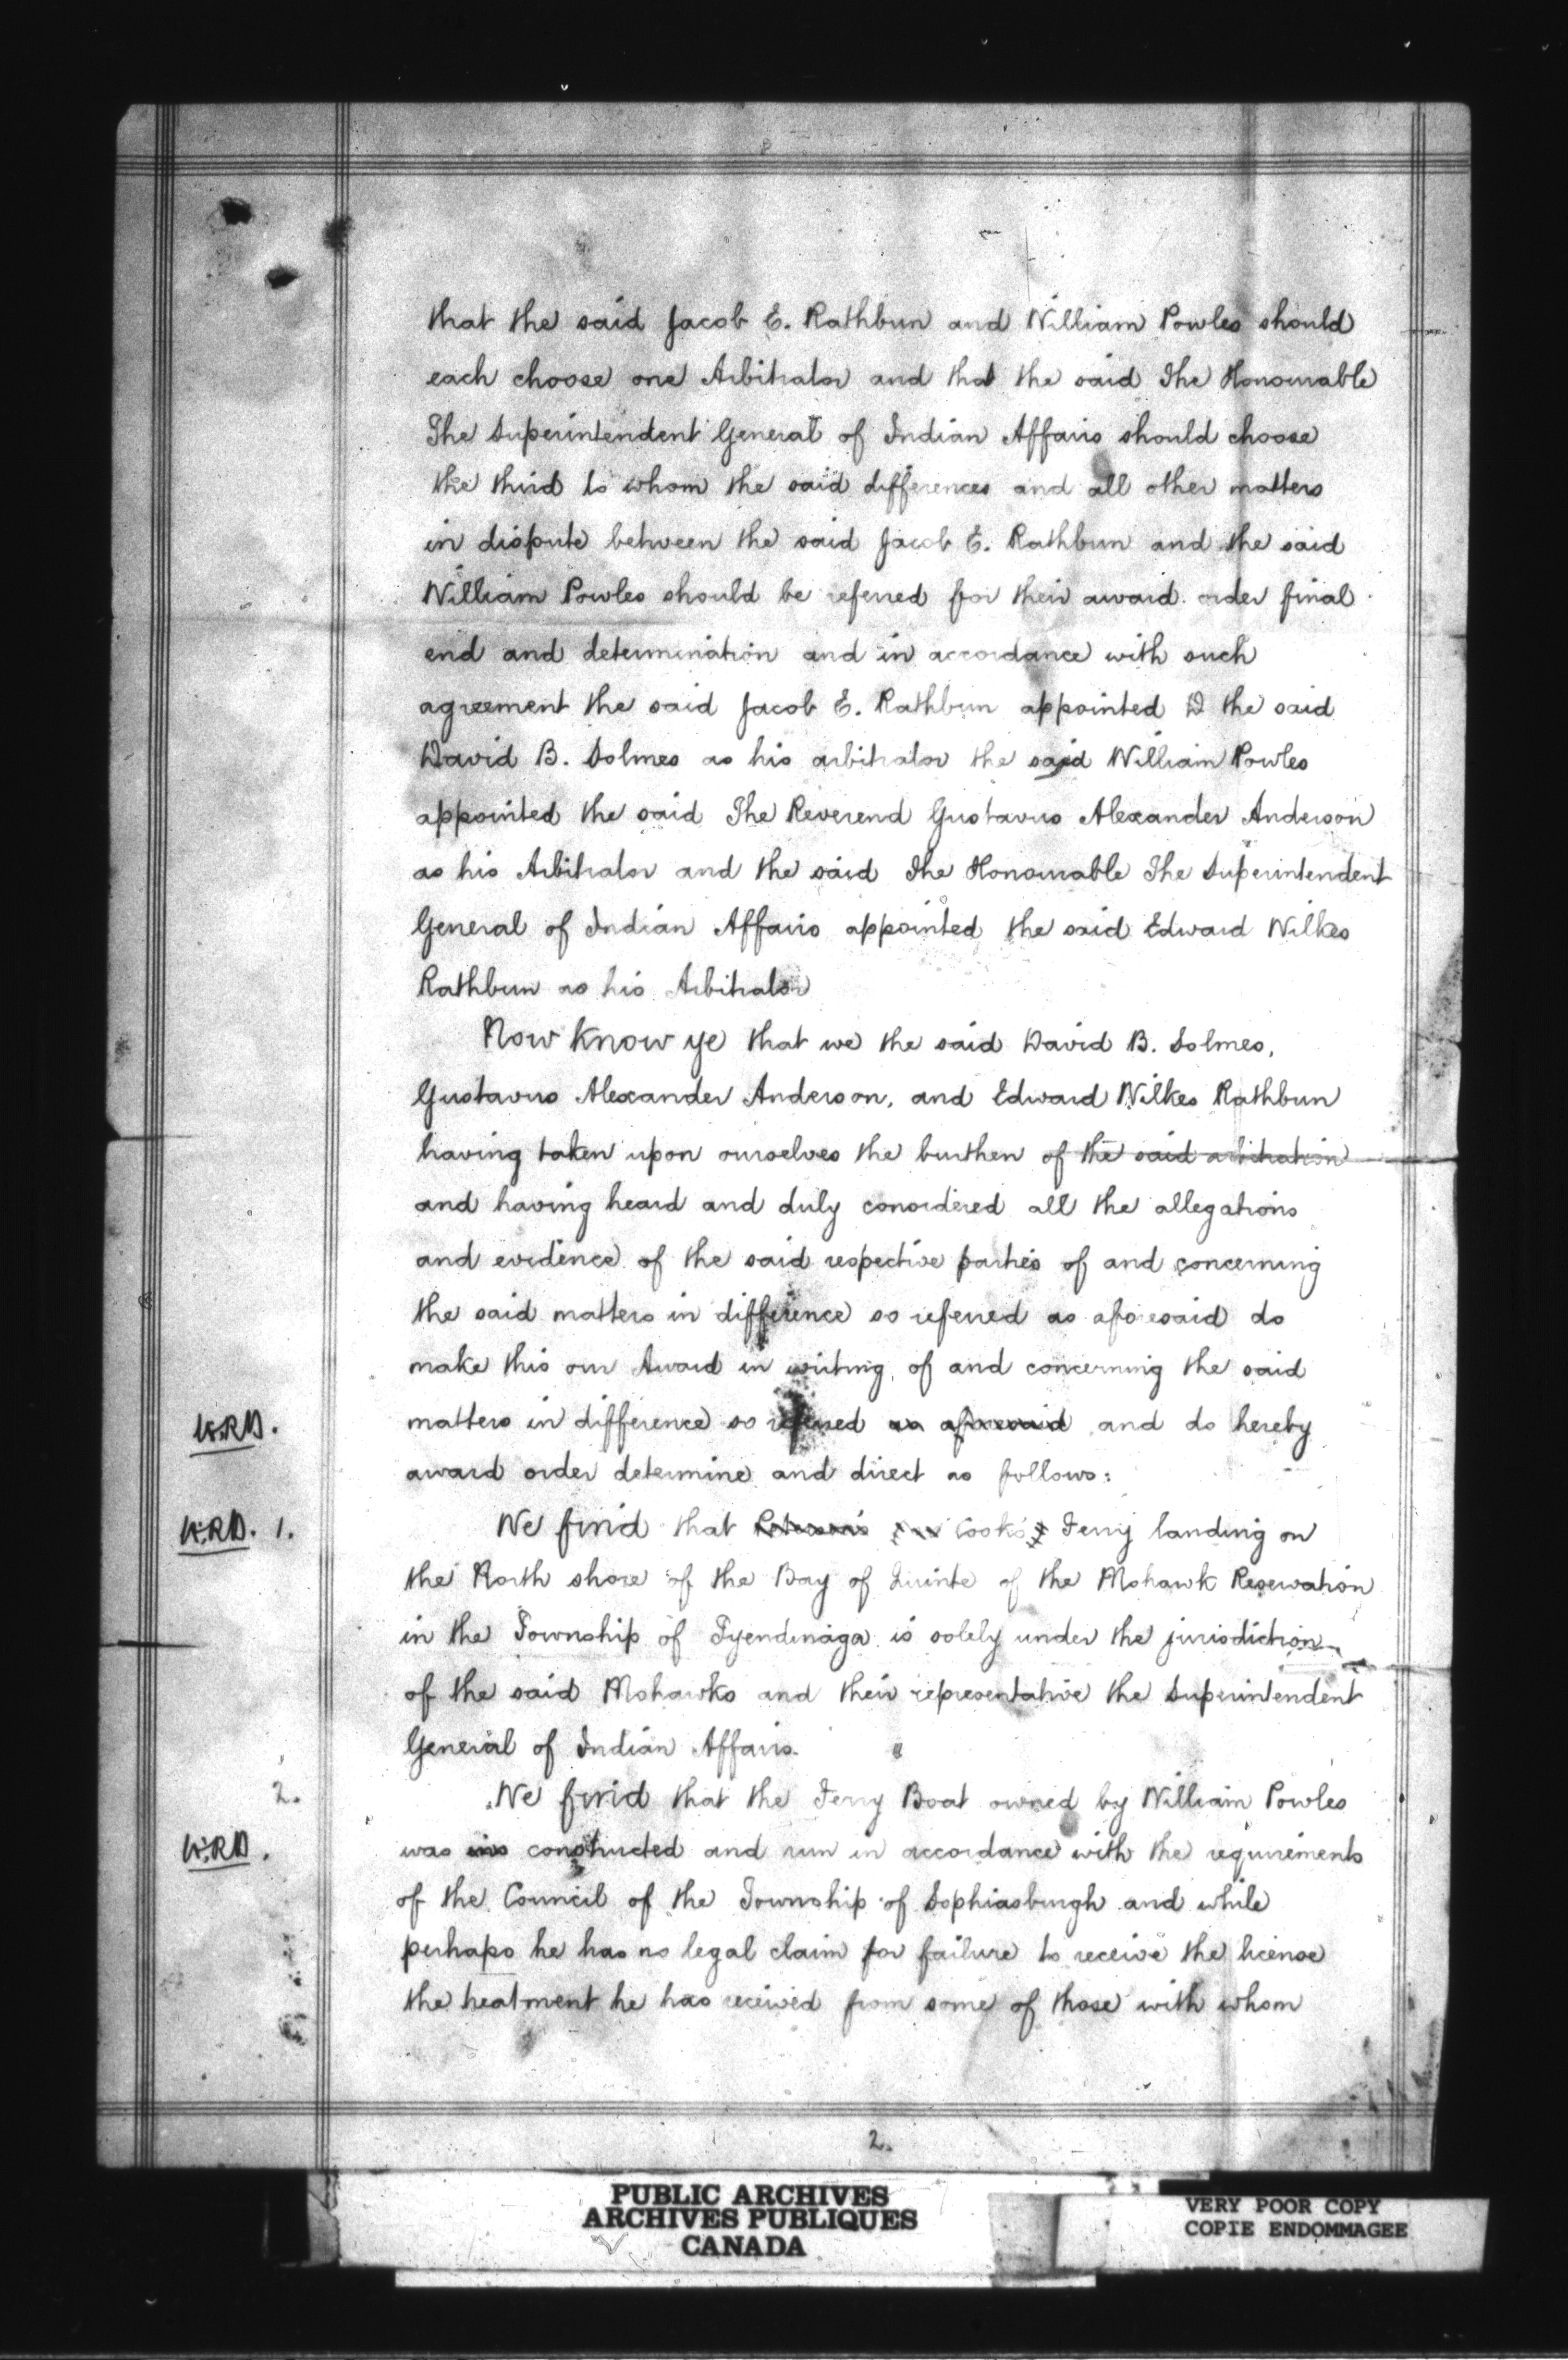 that the said Jacob E. Rathbun and William Powles should
each choose one Arbitrator and that the said The Honourable
The Superintendent General of Indian Affairs should choose
the third to whom the said differences and all other matters
in dispute between the said Jacob E. Rathbun and the said
William Powles should be referred for their award order final
end and determination and in accordance with such
agreement the said Jacob E. Rathbun appointed D the said
David B. Solmes as his arbitrator the said William Powles
appointed the said The Reverend Gustavus Alexander Anderson
as his Arbitrator and the said The Honourable The Superintendent
General of Indian Affairs appointed the said Edward Wilkes
Rathbun as his Arbitrator
Now know ye that we the said David B. Solmes,
Gustavus Alexander Anderson, and Edward Wilkes Rathbun
having taken upon ourselves the burthen of the said arbitration
and having heard and duly considered all the allegations
and evidence of the said respective parties of and concerning
the said matters in difference so referred as aforesaid do
make this our Award in writing, of and concerning the said
W.R.D. matters in difference so referred as aforesaid and do hereby
award order determine and direct as follows:
W.R.D. 1. We find that Cooks Ferry landing on
the North shore of the Bay of Quinte of the Mohawk Reservation
in the Township of Tyendinaga is solely under the jurisdiction
of the said Mohawks and their representative the Superintendent
General of Indian Affairs.
2. We find that the Ferry Boat owned by William Powles
W.R.D. was constructed and run in accordance with the requirements
of the Council of the Township of Sophiasburgh and while
perhaps he has no legal claim for failure to receive the license
the treatment he has received from some of those with whom
2.
PUBLIC ARCHIVES
ARCHIVES PUBLIQUES
CANADA
VERY POOR COPY
COPIE ENDOMMAGEE